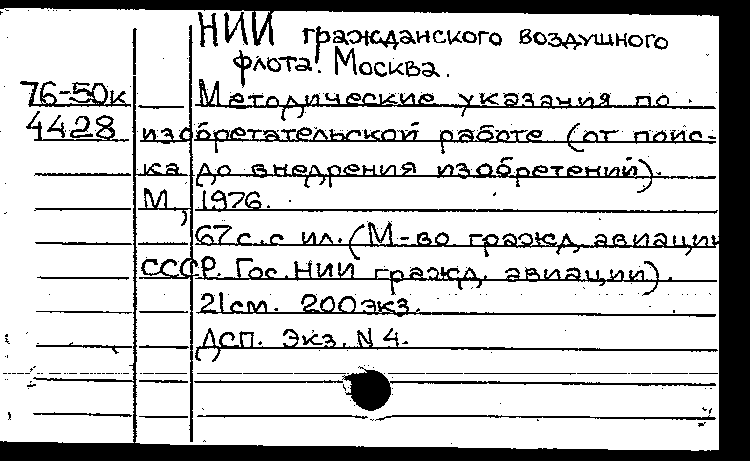 НИИ гражданского воздушного
флота. Москва.
76-50к Методические указания по
4428 изобретательской работе (от поис-
ка до внедрения изобретений).
М., 1976.
67 с. с ил. (М-во гражд. авиации
СССР. Гос. НИИ гражд. авиации).
21 см. 200 экз.
ДСП. Экз. N 4.